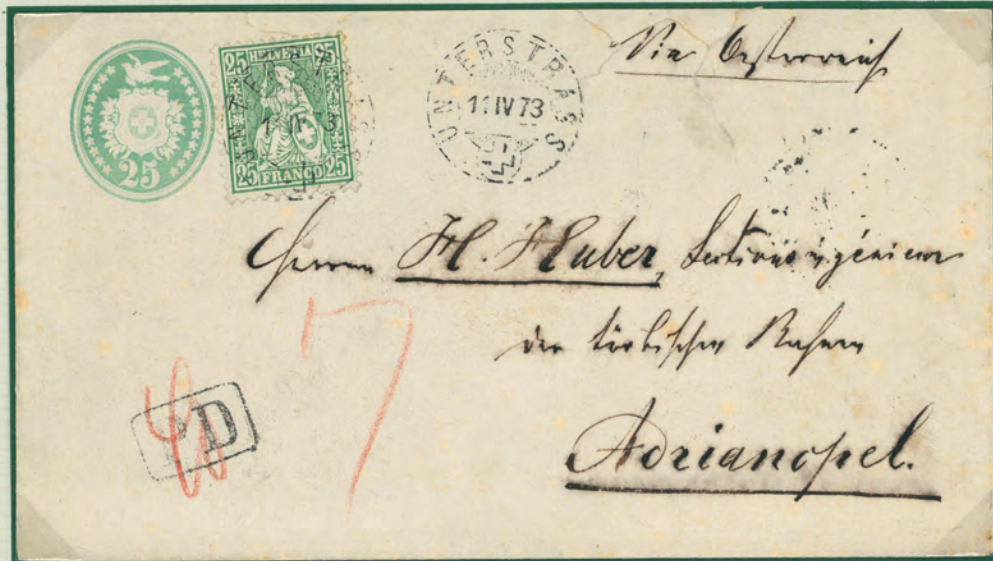 25
25 HELVETIA 25
25 FRANCO 25
UNTERSTRASS
11 IV 73
Via Oesterreich
Herrn H. Huber, Sectionsingenieur
der türkischen Bahnen
Adrianopel.
PD
7